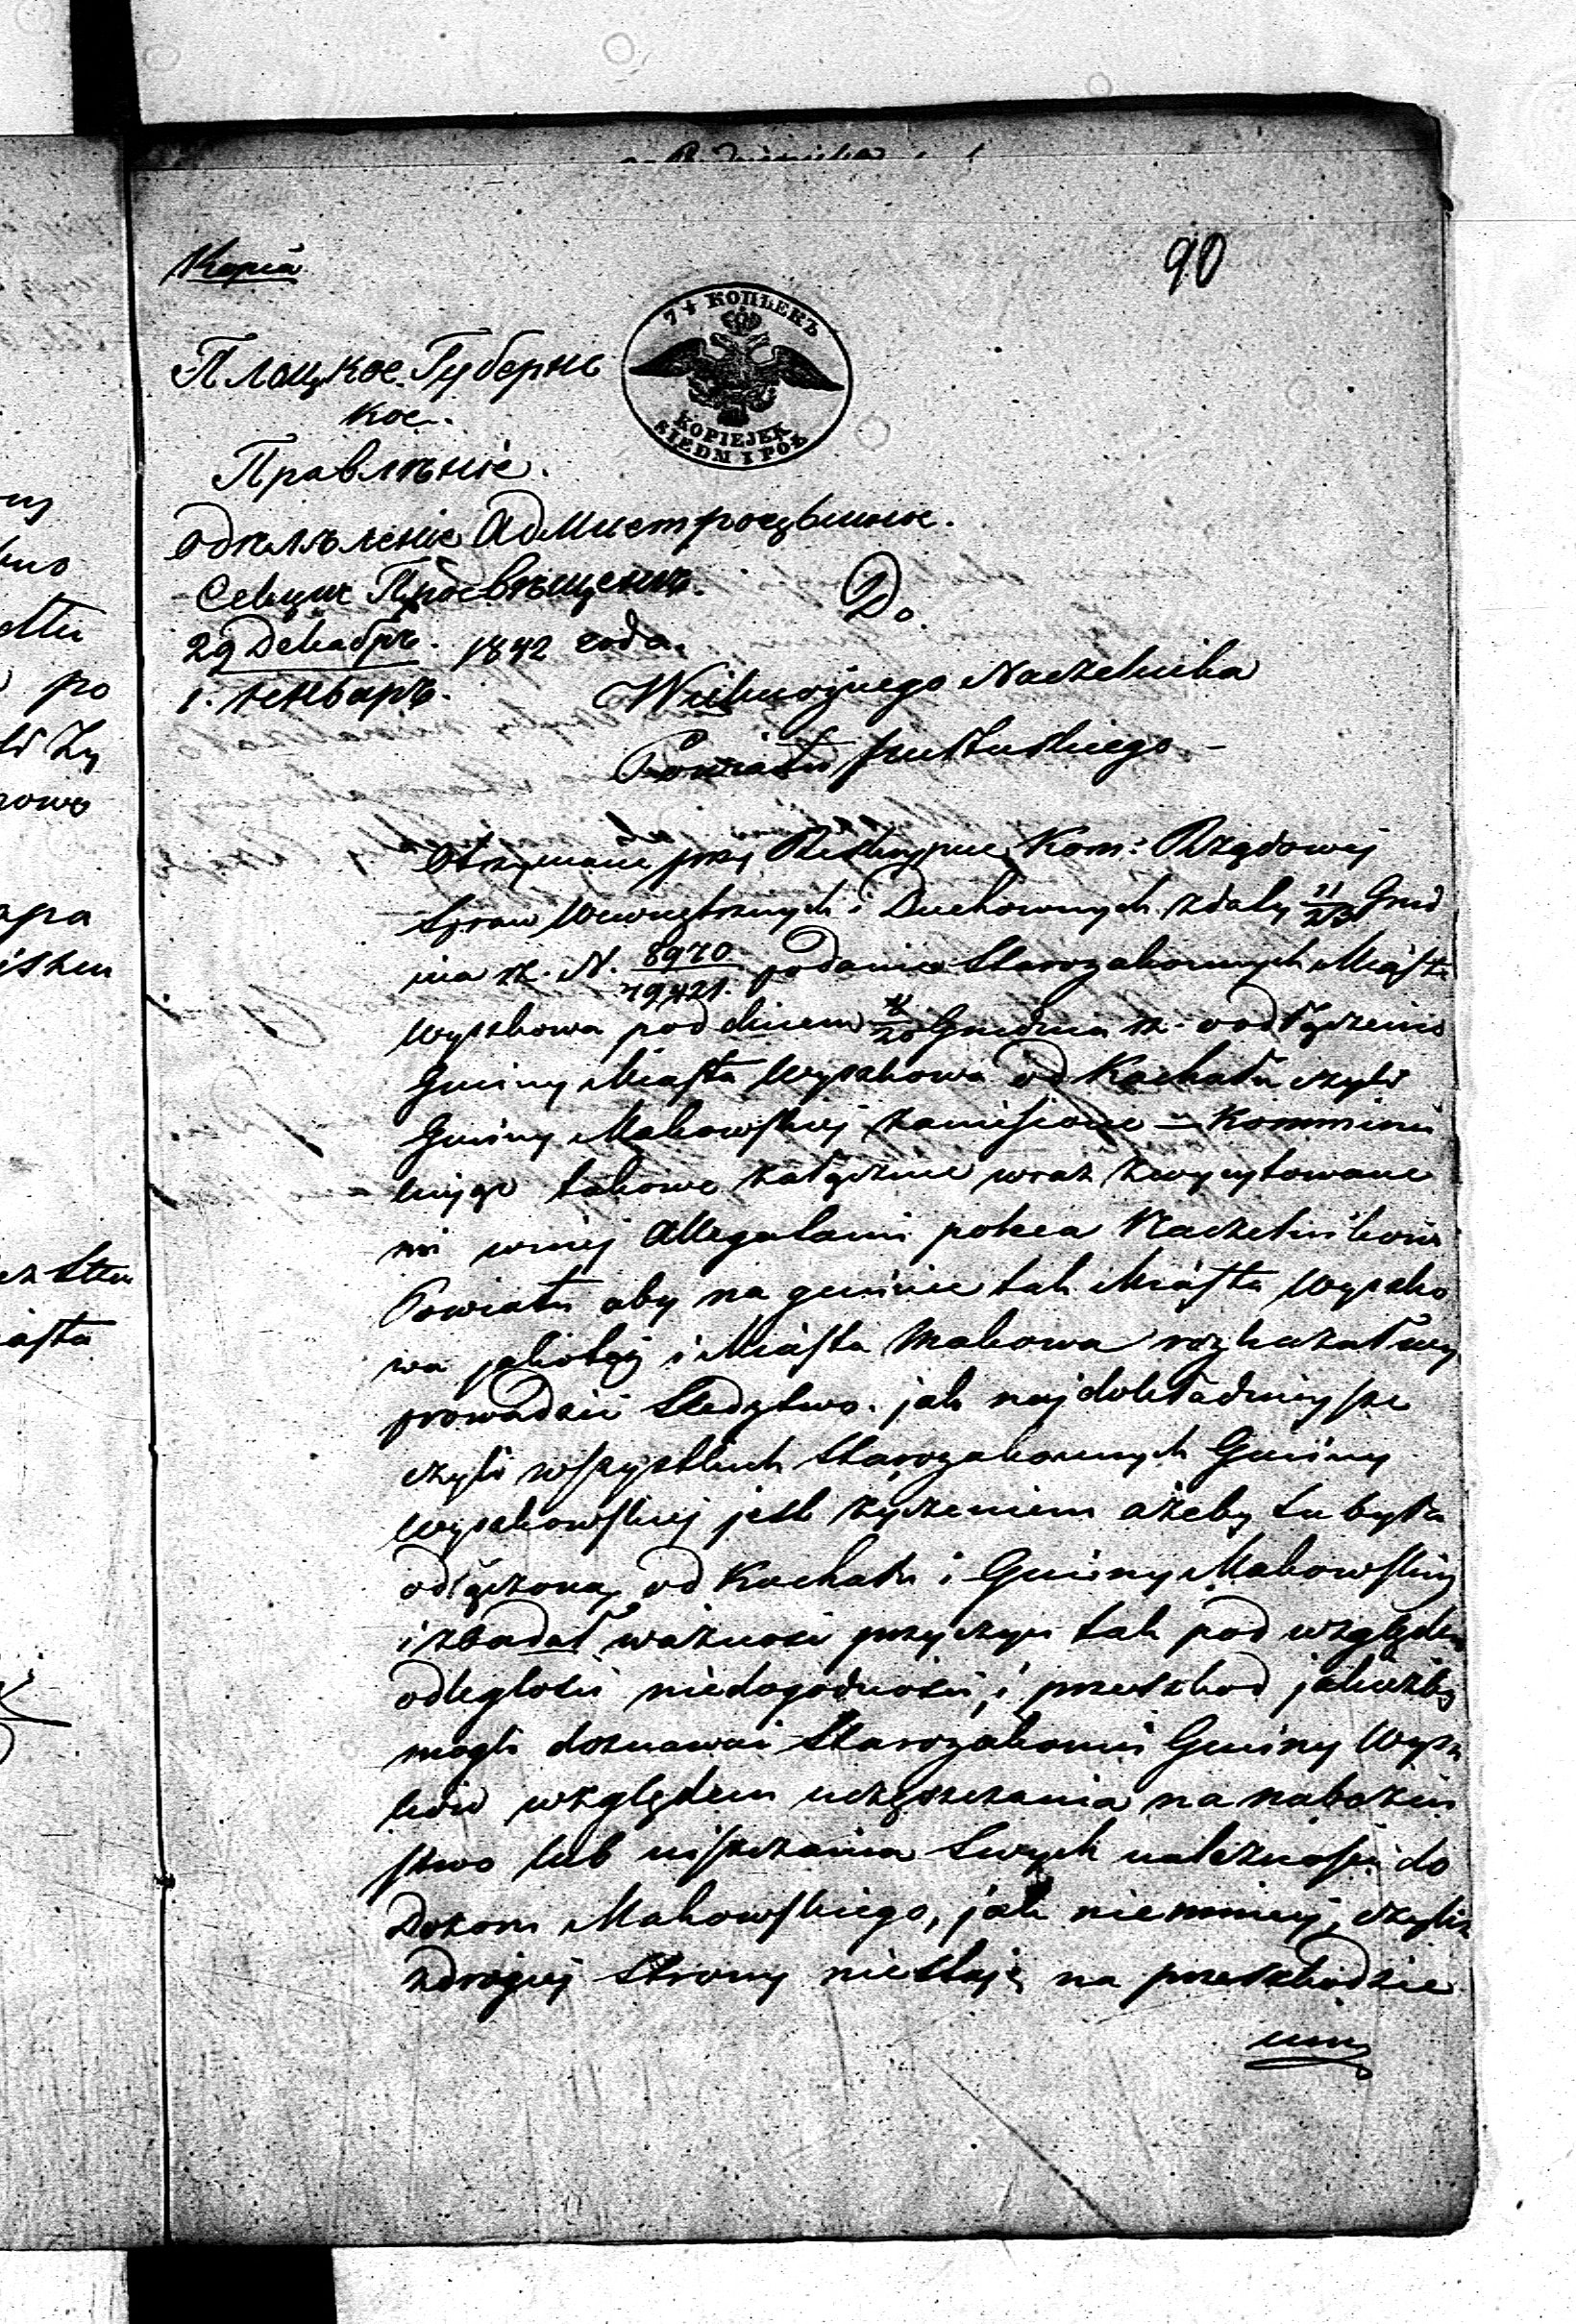 Kopia
90
7½ КОПѢЕКЪ
KOPIEJEK
SIEDM I PÓŁ
Плоцкое Губернс
кое
Правленіе.
Секции Просвѣщенія.
Do
29 Декабря 1842 года.
Wielmożnego Naczelnika
Powiatu Pułtuskiego
Otrzymane przy Reskrypcie Kom: Rządowej
Spraw Wewnętrznych i Duchownych z daty 11/23 Grud
nia r. N. 8970/19421. podanie Starozakonnych Miasta
Wyszkowa pod dniem 8/20 Grudnia r. o odłączenie
Gminy Miasta Wyszkowa od Kachału czyli
Gminy Makowskiej zaniesione – Kommuni
kując takowe załącznie wraz z wycytowane
mi w niej Allegatami poleca Naczelnikowi
Powiatu aby na gruncie tak Miasta Wyszko
wa jakoteż i Miasta Makowa rozkazał wy
prowadzić Śledztwo jak najdokładniejsze
czyli wszystkich Starozakonnych Gminy
Wyszkowskiej jest życzeniem ażeby ta była
odłączoną od Kachału i Gminy Makowskiej
i zbadał ważność przyczyn tak pod względem
odległości niedogodności, i przeszkod jakieżby
mogli doznawać Starozakonni Gminy Wysz
ków względem uczęszczania na nabożeń
stwo lub uiszczania swych należności do
Dozoru Makowskiego, jak niemniej, czyli z
z drugiej Strony nie staje na przeszkodzie